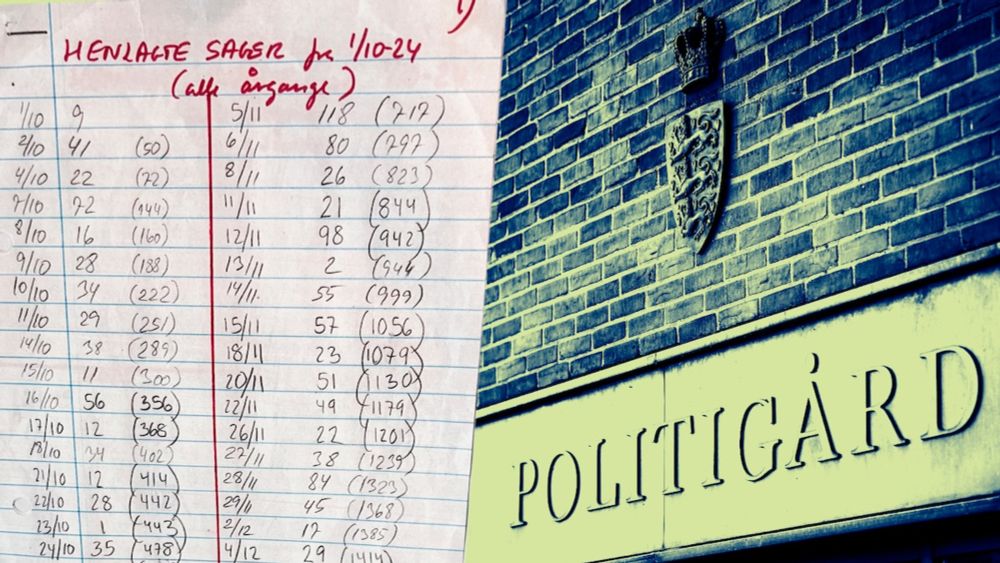 1)
HENLAGTE SAGER fra 1/10-24
(alle årgange)
1/10 9
2/10 41 (50)
4/10 22 (72)
7/10 72 (144)
8/10 16 (160)
9/10 28 (188)
10/10 34 (222)
11/10 29 (251)
14/10 38 (289)
15/10 11 (300)
16/10 56 (356)
17/10 12 (368)
18/10 34 (402)
21/10 12 (414)
22/10 28 (442)
23/10 1 (443)
24/10 35 (478)
5/11 118 (717)
6/11 80 (797)
8/11 26 (823)
11/11 21 (844)
12/11 98 (942)
13/11 2 (944)
14/11. 55 (999)
15/11 57 (1056)
18/11 23 (1079)
20/11 51 (1130)
22/11 49 (1179)
26/11 22 (1201)
27/11 38 (1239)
28/11 84 (1323)
29/11 45 (1368)
2/12 17 (1385)
4/12 29 (1414)
POLITIGÅRD